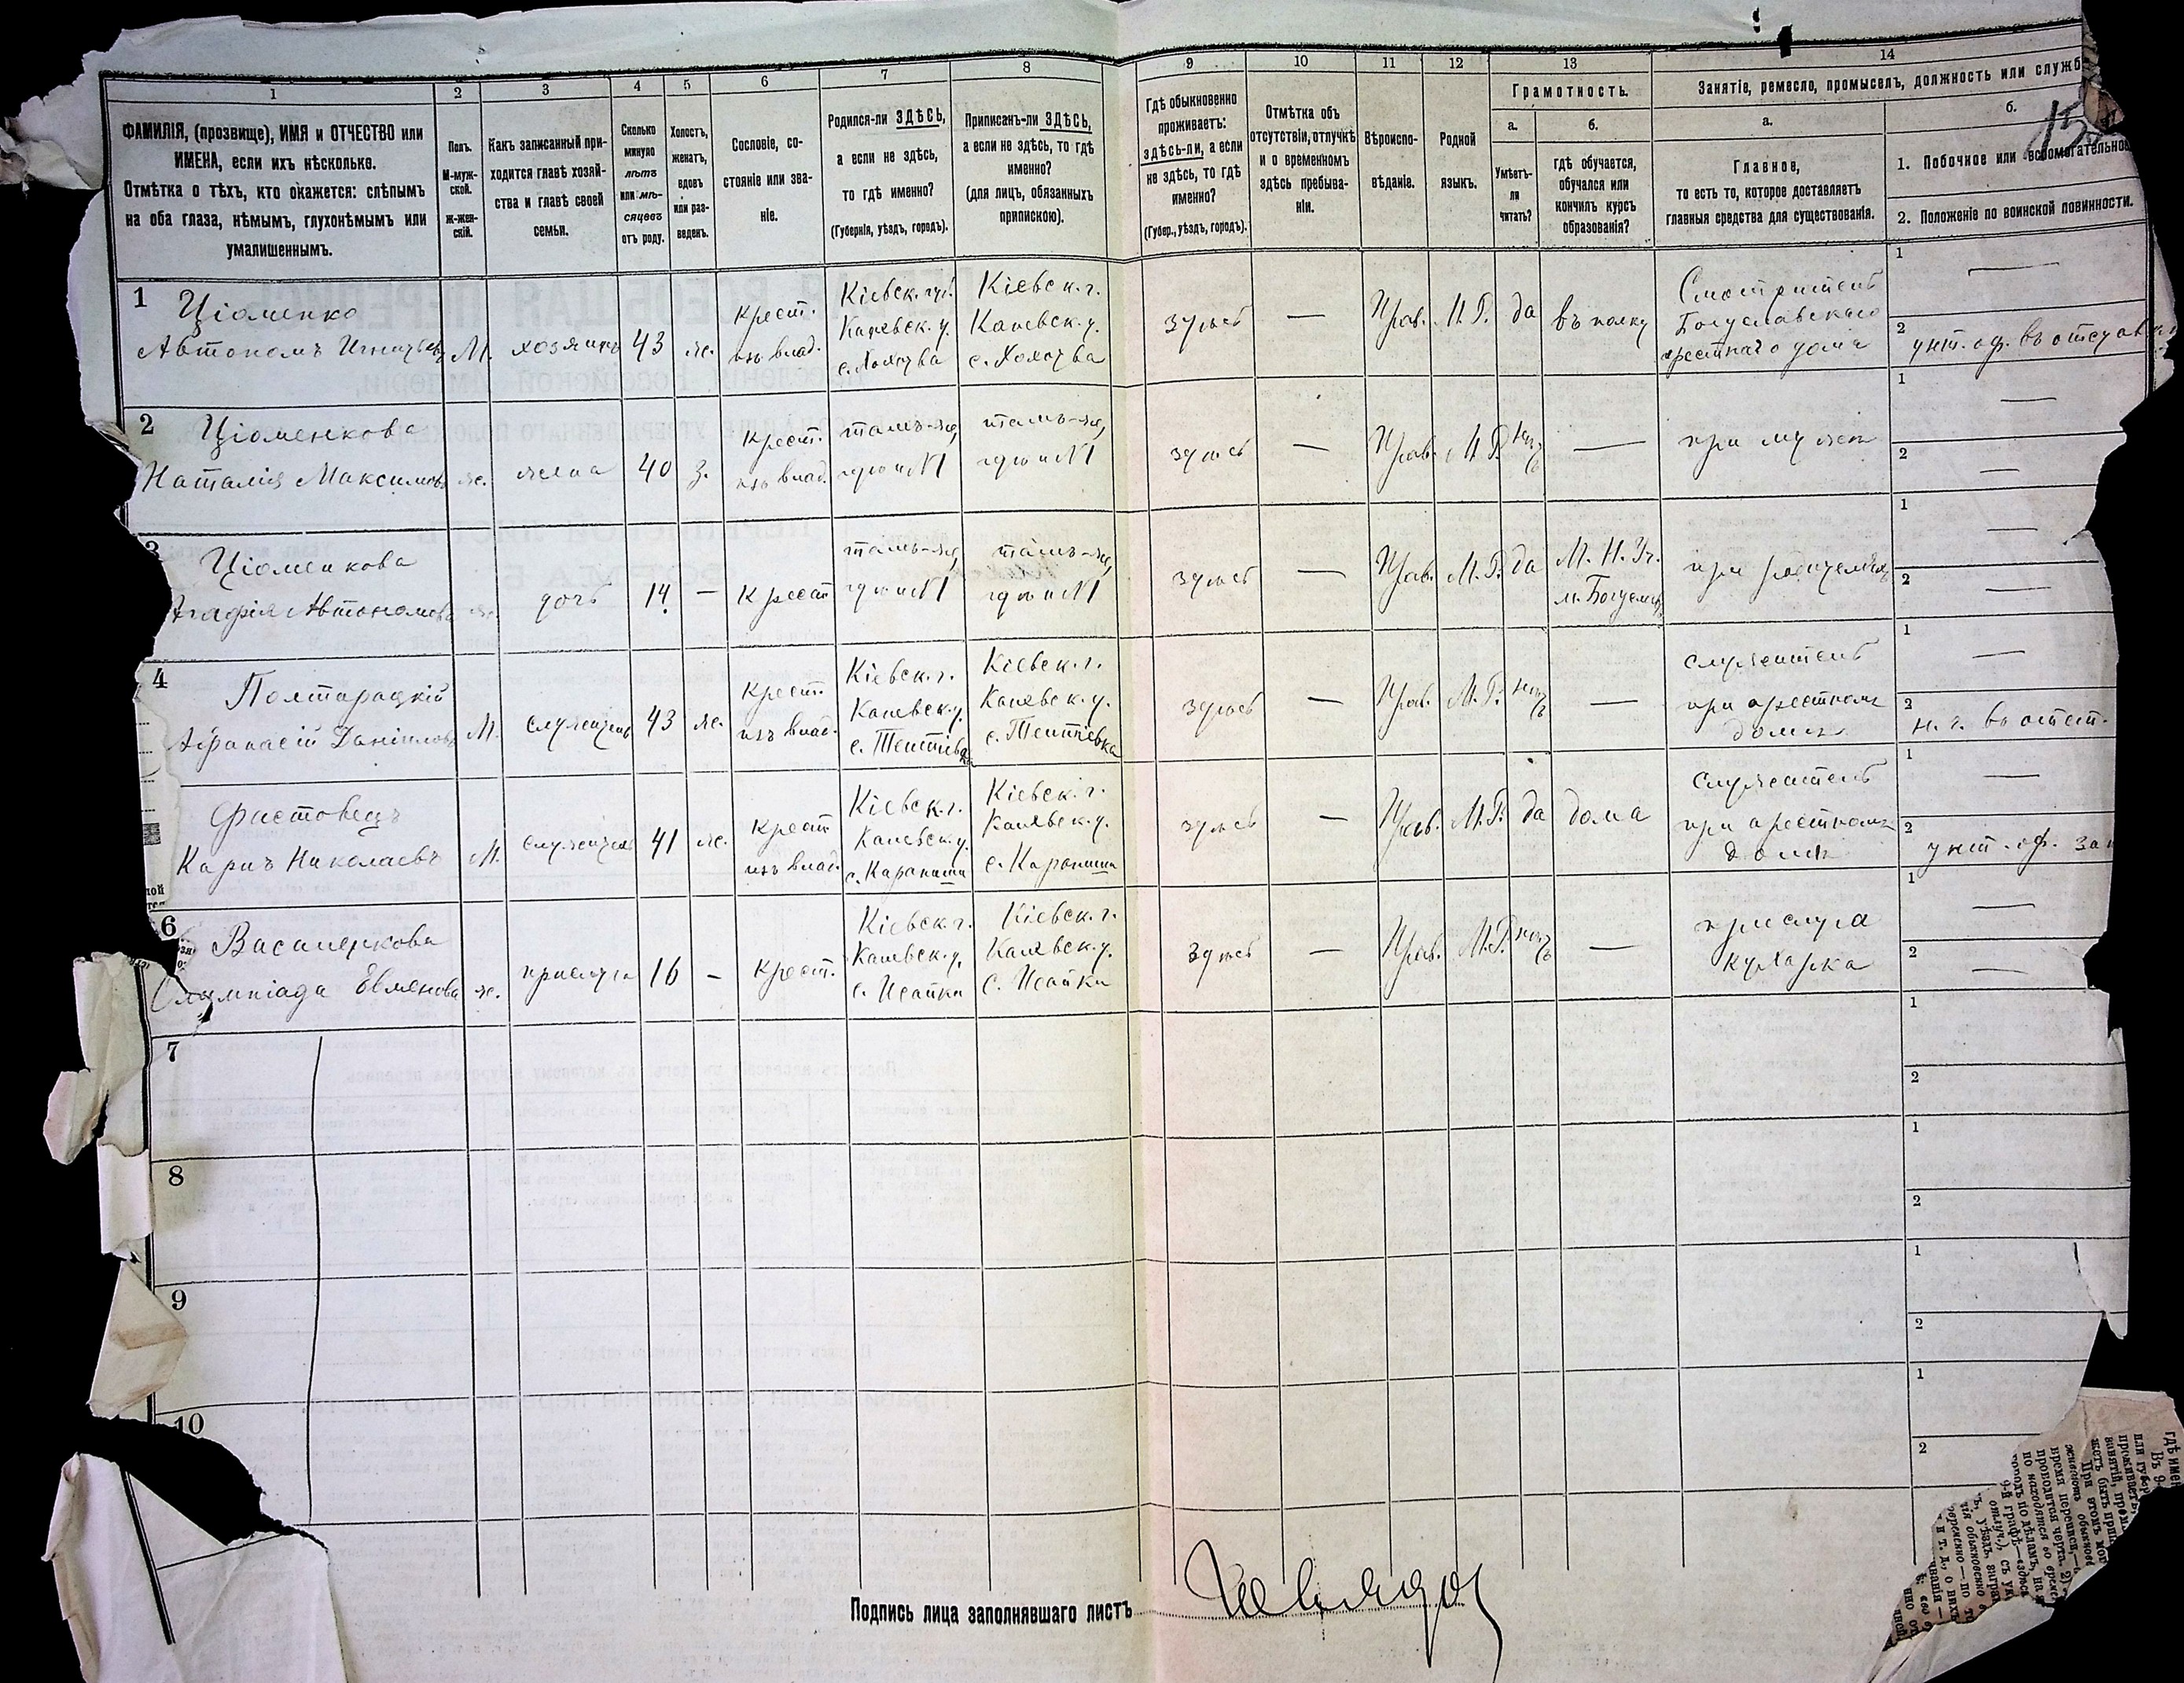 1
2
3
4
5
6
7
8
9
10
11
12
13
14
ФАМИЛІЯ, (прозвище), ИМЯ и ОТЧЕСТВО или
ИМЕНА, если ихъ нѣсколько.
Отмѣтка о тѣхъ, кто окажется: слѣпымъ
на оба глаза, нѣмымъ, глухонѣмымъ или
умалишеннымъ.
Полъ.
М-муж-
ской.
ж-жен-
скій.
Какъ записанный при-
ходится главѣ хозяй-
ства и главѣ своей
семьи.
Сколько
минуло
лѣтъ
или мѣ-
сяцевъ
отъ роду.
Холостъ,
женатъ,
вдовъ
или раз-
веденъ.
Сословіе, со-
стояніе или зва-
ніе.
Родился-ли ЗДѢСЬ,
а если не здѣсь,
то гдѣ именно?
(Губернія, уѣздъ, городъ).
Приписанъ-ли ЗДѢСЬ,
а если не здѣсь, то гдѣ
именно?
(для лицъ, обязанныхъ
припискою).
Гдѣ обыкновенно
проживаетъ:
здѣсь-ли, а если
не здѣсь, то гдѣ
именно?
(Губер., уѣздъ, городъ).
Отмѣтка объ
отсутствіи, отлучкѣ
и о временномъ
здѣсь пребыва-
ніи.
Вѣроиспо-
вѣданіе.
Родной
языкъ.
Грамотность.
а.
б.
Умѣетъ-
ли
читать?
гдѣ обучается,
обучался или
кончилъ курсъ
образованія?
Занятіе, ремесло, промыселъ, должность или служб
а.
б.
Главное,
то есть то, которое доставляетъ
главныя средства для существованія.
1. Побочное или вспомогательное
2. Положеніе по воинской повинности.
1
Ціоменко
Автономъ Игнатьевъ
М.
хозяинъ
43
ж.
крест.
изъ влад.
Кіевск. губ.
Каневск. у.
с. Хохутва
Кіевск. г.
Каневск. у.
с. Хохутва
здѣсь
—
Прав.
М.Р.
да
въ полку
Смотритель
Богуславскаго
арестнаго дома
1 —
2 унт. оф. въ отстав
2
Ціоменкова
Наталія Максимова
ж.
жена
40
з.
крест.
изъ влад.
тамъ-же,
гдѣ и №1
тамъ-же,
гдѣ и №1
здѣсь
—
Прав.
М.Р.
нѣтъ
—
при мужѣ
1 —
2 —
3
Ціоменкова
Агафія Автономова
ж.
дочь
14
—
крест
тамъ-же,
гдѣ и №1
тамъ-же,
гдѣ и №1
здѣсь
—
Прав.
М.Р.
да
М. Н. Уч.
м. Богуславъ
при родителяхъ
1 —
2 —
4
Полтарацкій
Афанасій Даніиловъ
М.
служитель
43
ж.
крест.
изъ влад.
Кіевск. г.
Каневск. у.
Кіевск. г.
Каневск. у.
здѣсь
—
Прав.
М.Р.
нѣтъ
—
служитель
при арестномъ
домѣ
1 —
2
Фастовецъ
Карпъ Николаевъ
М.
служитель
41
ж.
крест
изъ влад.
Кіевск. г.
Каневск. у.
с. Карапиши
Кіевск. г.
Каневск. у.
с. Карапиши
здѣсь
—
Прав.
М.Р.
да
дома
служитель
при арестномъ
домѣ
1 —
2 унт. оф. зап
6
Олимпіада Евменова
ж.
прислуга
16
—
крест.
Кіевск. г.
Каневск. у.
с. Исайки
Кіевск. г.
Каневск. у.
с. Исайки
здѣсь
—
Прав.
М.Р.
нѣтъ
—
прислуга
кухарка
1 —
2 —
7
1
2
8
1
2
9
1
2
10
1
2
Подпись лица заполнявшаго листъ